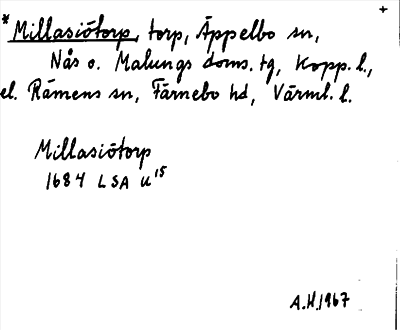 +
* Millasiötorp, torp, Äppelbo sn,
Nås o. Malungs doms. tg, Kopp. l.,
el. Rämens sn, Färnebo hd, Värml. l.
Millasiötorp
1684 LSA U15
A.H. 1967